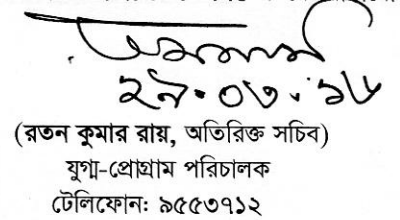 ২৯.০৩.১৮
(রতন কুমার রায়, অতিরিক্ত সচিব)
যুগ্ম-প্রোগ্রাম পরিচালক
টেলিফোনঃ ৯৫৫৩৭১২